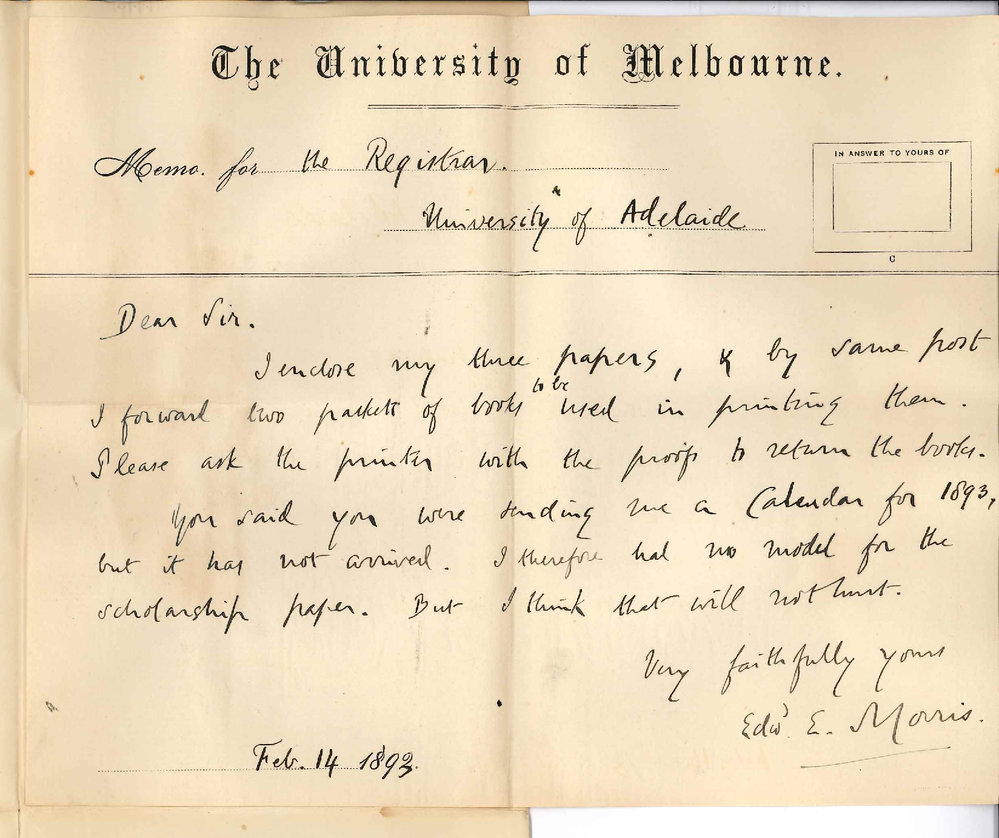 The University of Melbourne.
Memo. for the Registrar.
University of Adelaide
IN ANSWER TO YOURS OF
C
Dear Sir.
I enclose my three papers, & by same post
I forward two packets of books to be used in printing them.
Please ask the printer with the proofs to return the books.
You said you were sending me a Calendar for 1893,
but it has not arrived. I therefore had no model for the
scholarship paper. But I think that will not hurt.
Very faithfully yours
Edwd. E. Morris.
Feb. 14 1893.